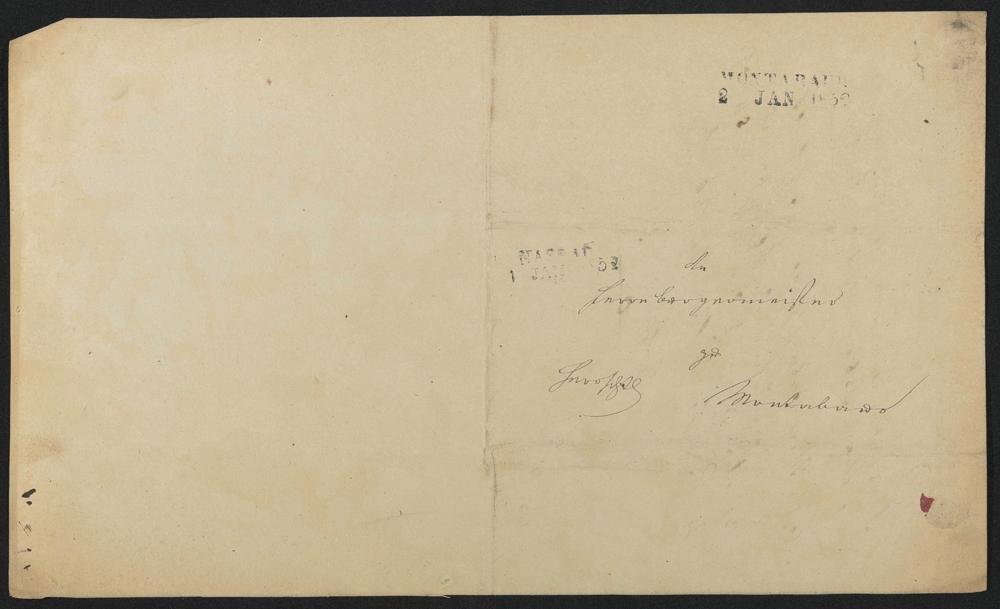 MONTABAUR
2 JAN
NASSAU
1 JAN
An
Herrn Bürgermeister
zu
Montabaur